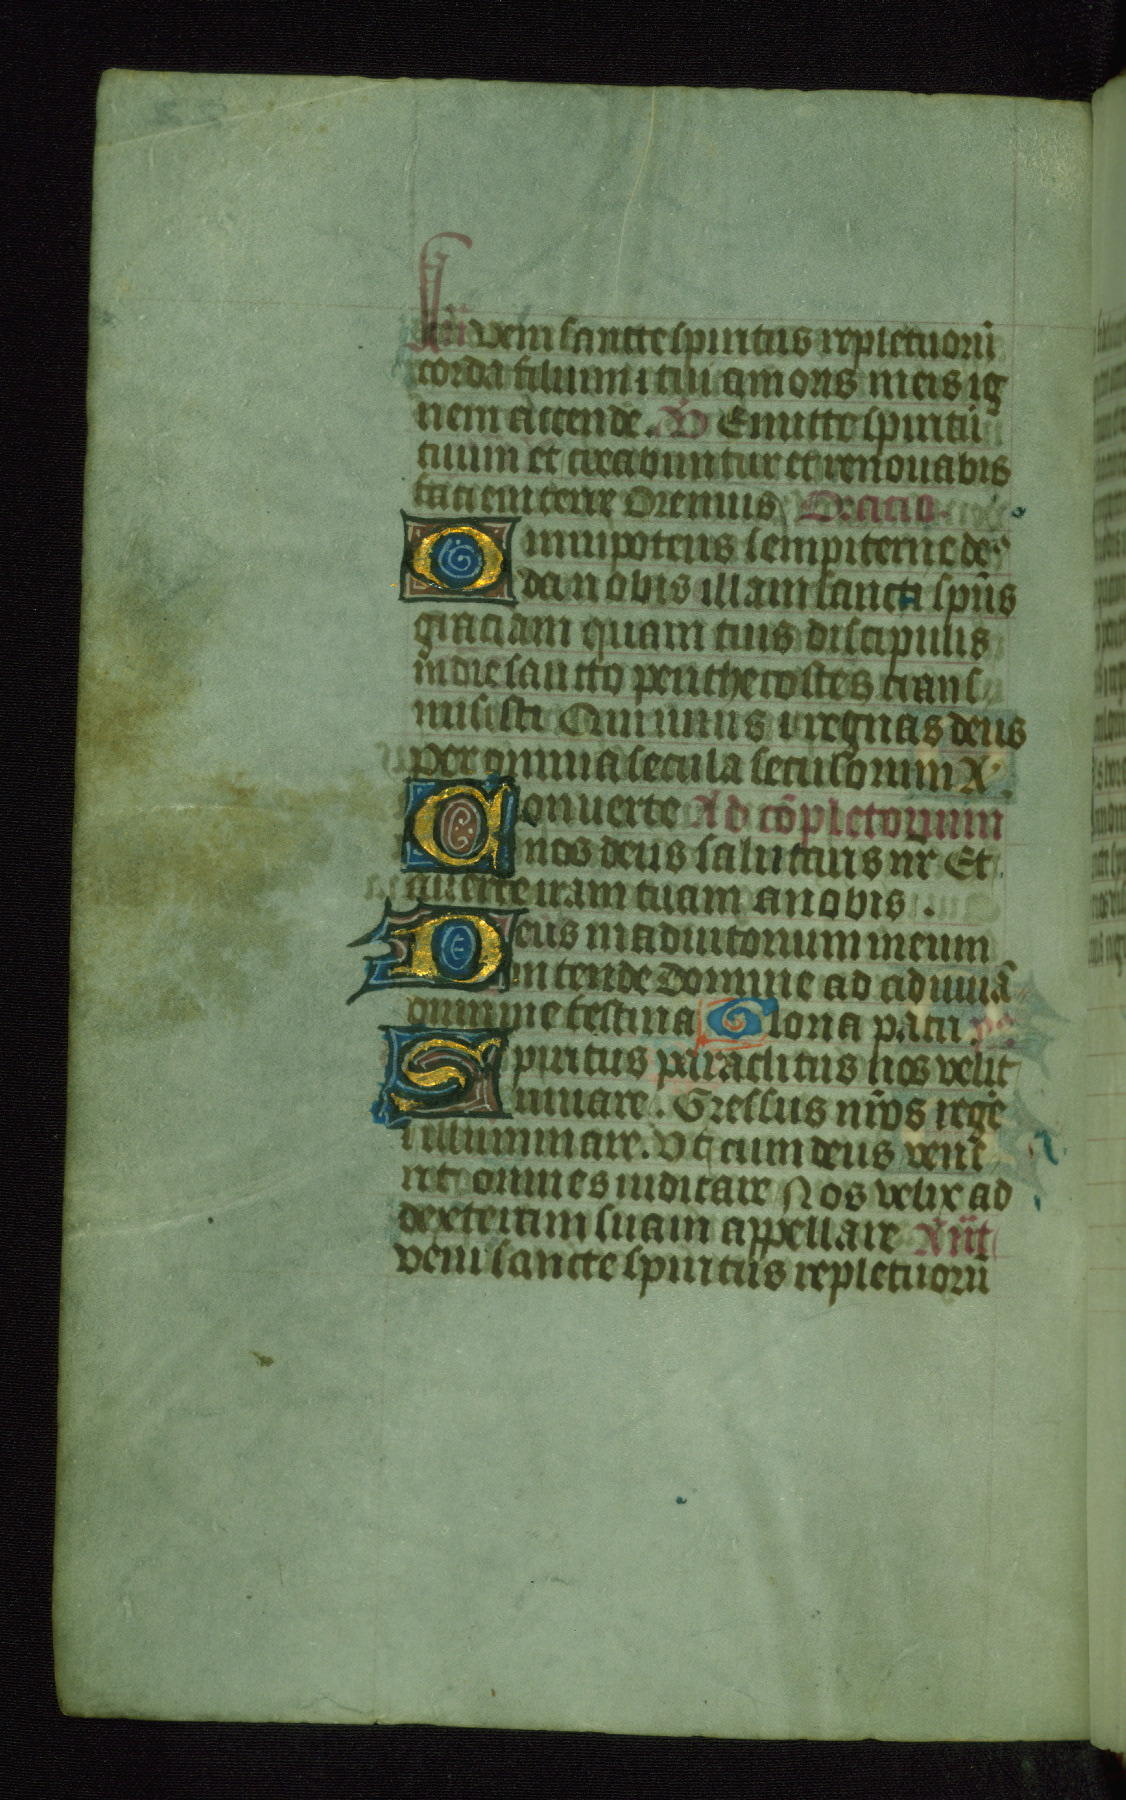 An̄ veni sancte spiritus reple tuorū
corda filiumi tui amoris meis ig
nem accende. V̄ Emitte spiritū
tuum et creabuntur et renouabis
faciem terre Oremus Oracio.
Omnipotens sempiterne de⁹
da nobis illam sancti spūs
graciam quam tuis discipulis
in die sancto penthecostes trans
misisti Qui uiuis i regnas deus
per omnia secula seculorum A
Conuerte Ad cōpletorium
nos deus salutaris nr Et
auerte iram tuam anobis .
Deus in adiutorium meum
intende Domine ad adiuuā
dum me festina Gloria patri . ps
Spiritus paraclitus nos velit
iuuare . Gressus nr̄os regē
i illuminare. Vt cum deus venē
rit omnes iudicare Nos velix ad
dexteram suam appellare An̄t
veni sancte spiritus reple tuorū